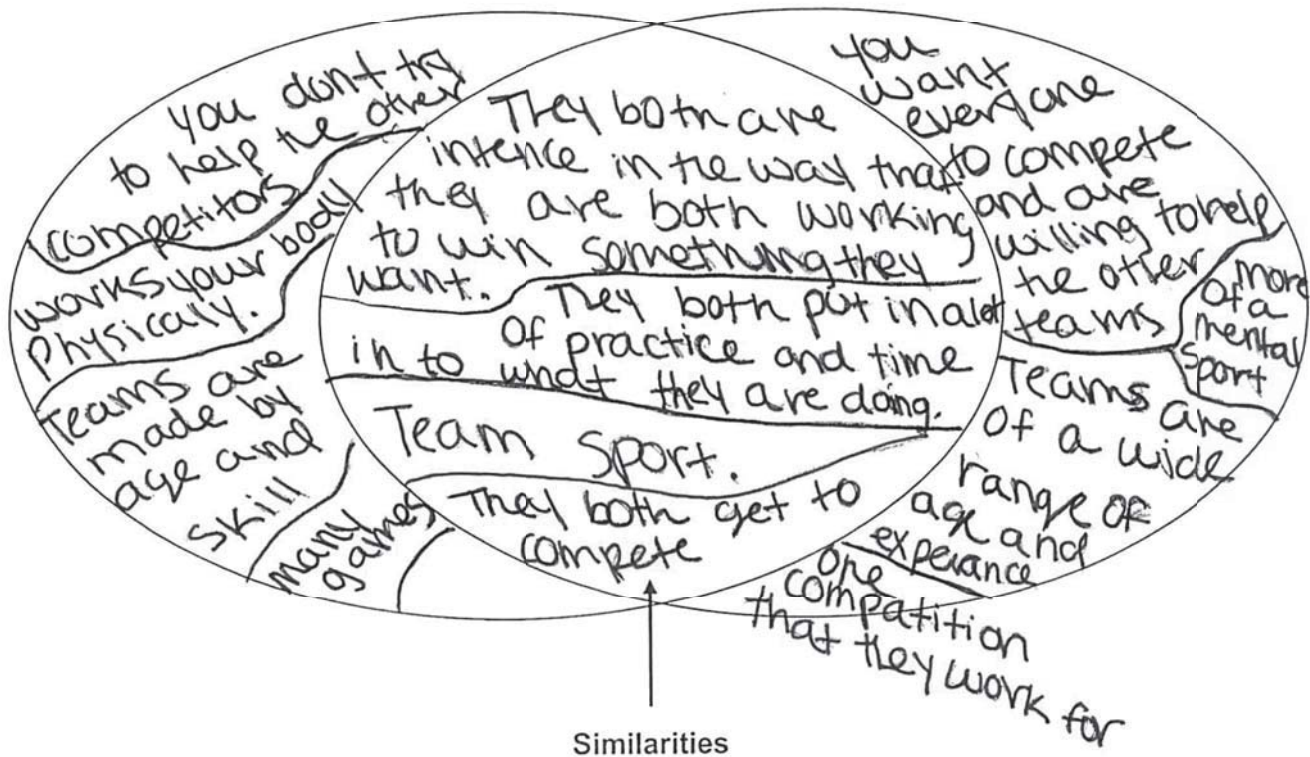 you dont try
to help the other
competitors
works your body
physicaly.
Teams are
made by
age and
skill
many
games
They both are
intence in the way that
they are both working
to win something they
want.
They both put in alot
of practice and time
in to what they are doing.
Team sport.
They both get to
compete
you
want
everyone
to compete
and are
willing to help
the other
teams
more
of a
mental
sport
Teams are
of a wide
range of
age and
experance
one
compatition
that they work for
Similarities